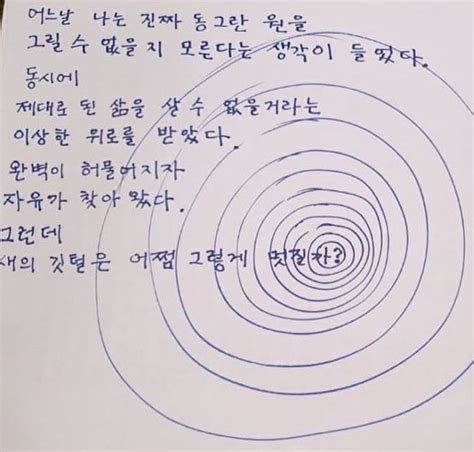 어느날 나는 진짜 동그란 원을
그릴 수 없을지 모른다는 생각이 들었다.
동시에
제대로 된 삶을 살 수 없을거라는
이상한 위로를 받았다.
완벽이 허물어지자
자유가 찾아 왔다.
그런데
새의 깃털은 어쩜 그렇게 멋질까?